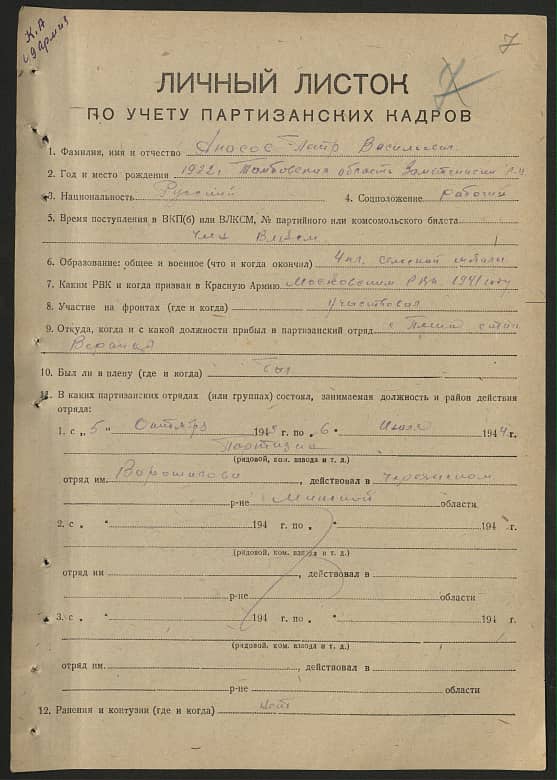 К. А
9 Армия
7
ЛИЧНЫЙ ЛИСТОК
ПО УЧЕТУ ПАРТИЗАНСКИХ КАДРОВ
1. Фамилия, имя и отчество Аносов Петр Васильевич
2. Год и место рождения 1922 г Тамбовская область Заметчинский р-н
3. Национальность Русский 4. Соцположение рабочий
5. Время поступления в ВКП(б) или ВЛКСМ, № партийного или комсомольского билета
член Влксм
6. Образование: общее и военное (что и когда окончил) 4 кл. сельской школы
7. Каким РВК и когда призван в Красную Армию Московским РВК 1941 году
8. Участие на фронтах (где и когда) Участвовал
9. Откуда, когда и с какой должности прибыл в партизанский отряд с
10. Был ли в плену (где и когда) Был
11. В каких партизанских отрядах (или группах) состоял, занимаемая должность и район действия
отряда:
1. с „ 5 " Октября 1943 г. по „ 6 " Июля 1944 г.
Партизан
(рядовой, ком. взвода и т. д.)
отряд им. Ворошилова, действовал в Червенском
р-не Минской области
2. с „ " 194 г. по „ " 194 г.
(рядовой, ком. взвода и т. д.)
отряд им , действовал в
р-не области
3. с „ " 194 г. по „ " 194 г.
(рядовой, ком. взвода и т. д.)
отряд им. , действовал в
р-не области
12. Ранения и контузии (где и когда) нет